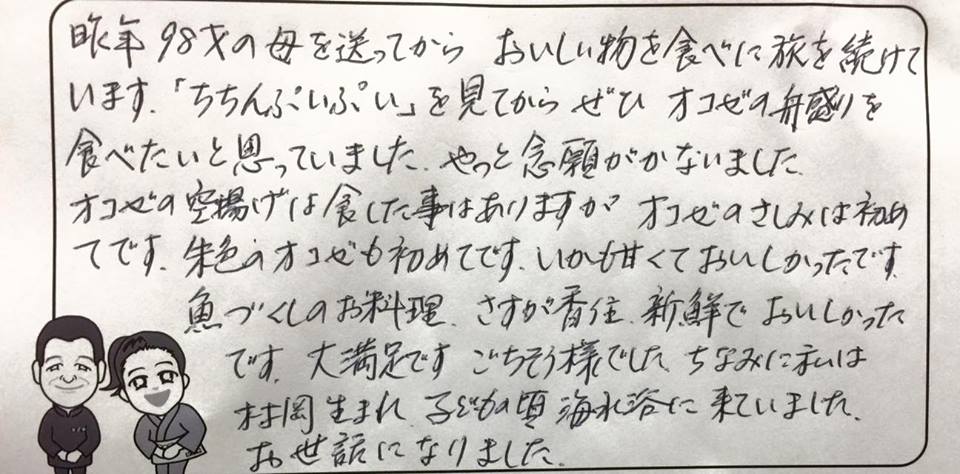 昨年98才の母を送ってから おいしい物を食べに旅を続けて
います.「ちちんぷいぷい」を見てから ぜひ オコゼの舟盛りを
食べたいと思っていました. やっと念願がかないました.
オコゼの空揚げは食した事はありますが オコゼのさしみは初め
てです. 朱色のオコゼも初めてです. いかも甘くておいしかったです.
魚づくしのお料理. さすが香住. 新鮮で おいしかった
です. 大満足です ごちそう様でした. ちなみに私は
村岡生まれ. 子どもの頃 海水浴に来ていました.
お世話になりました.